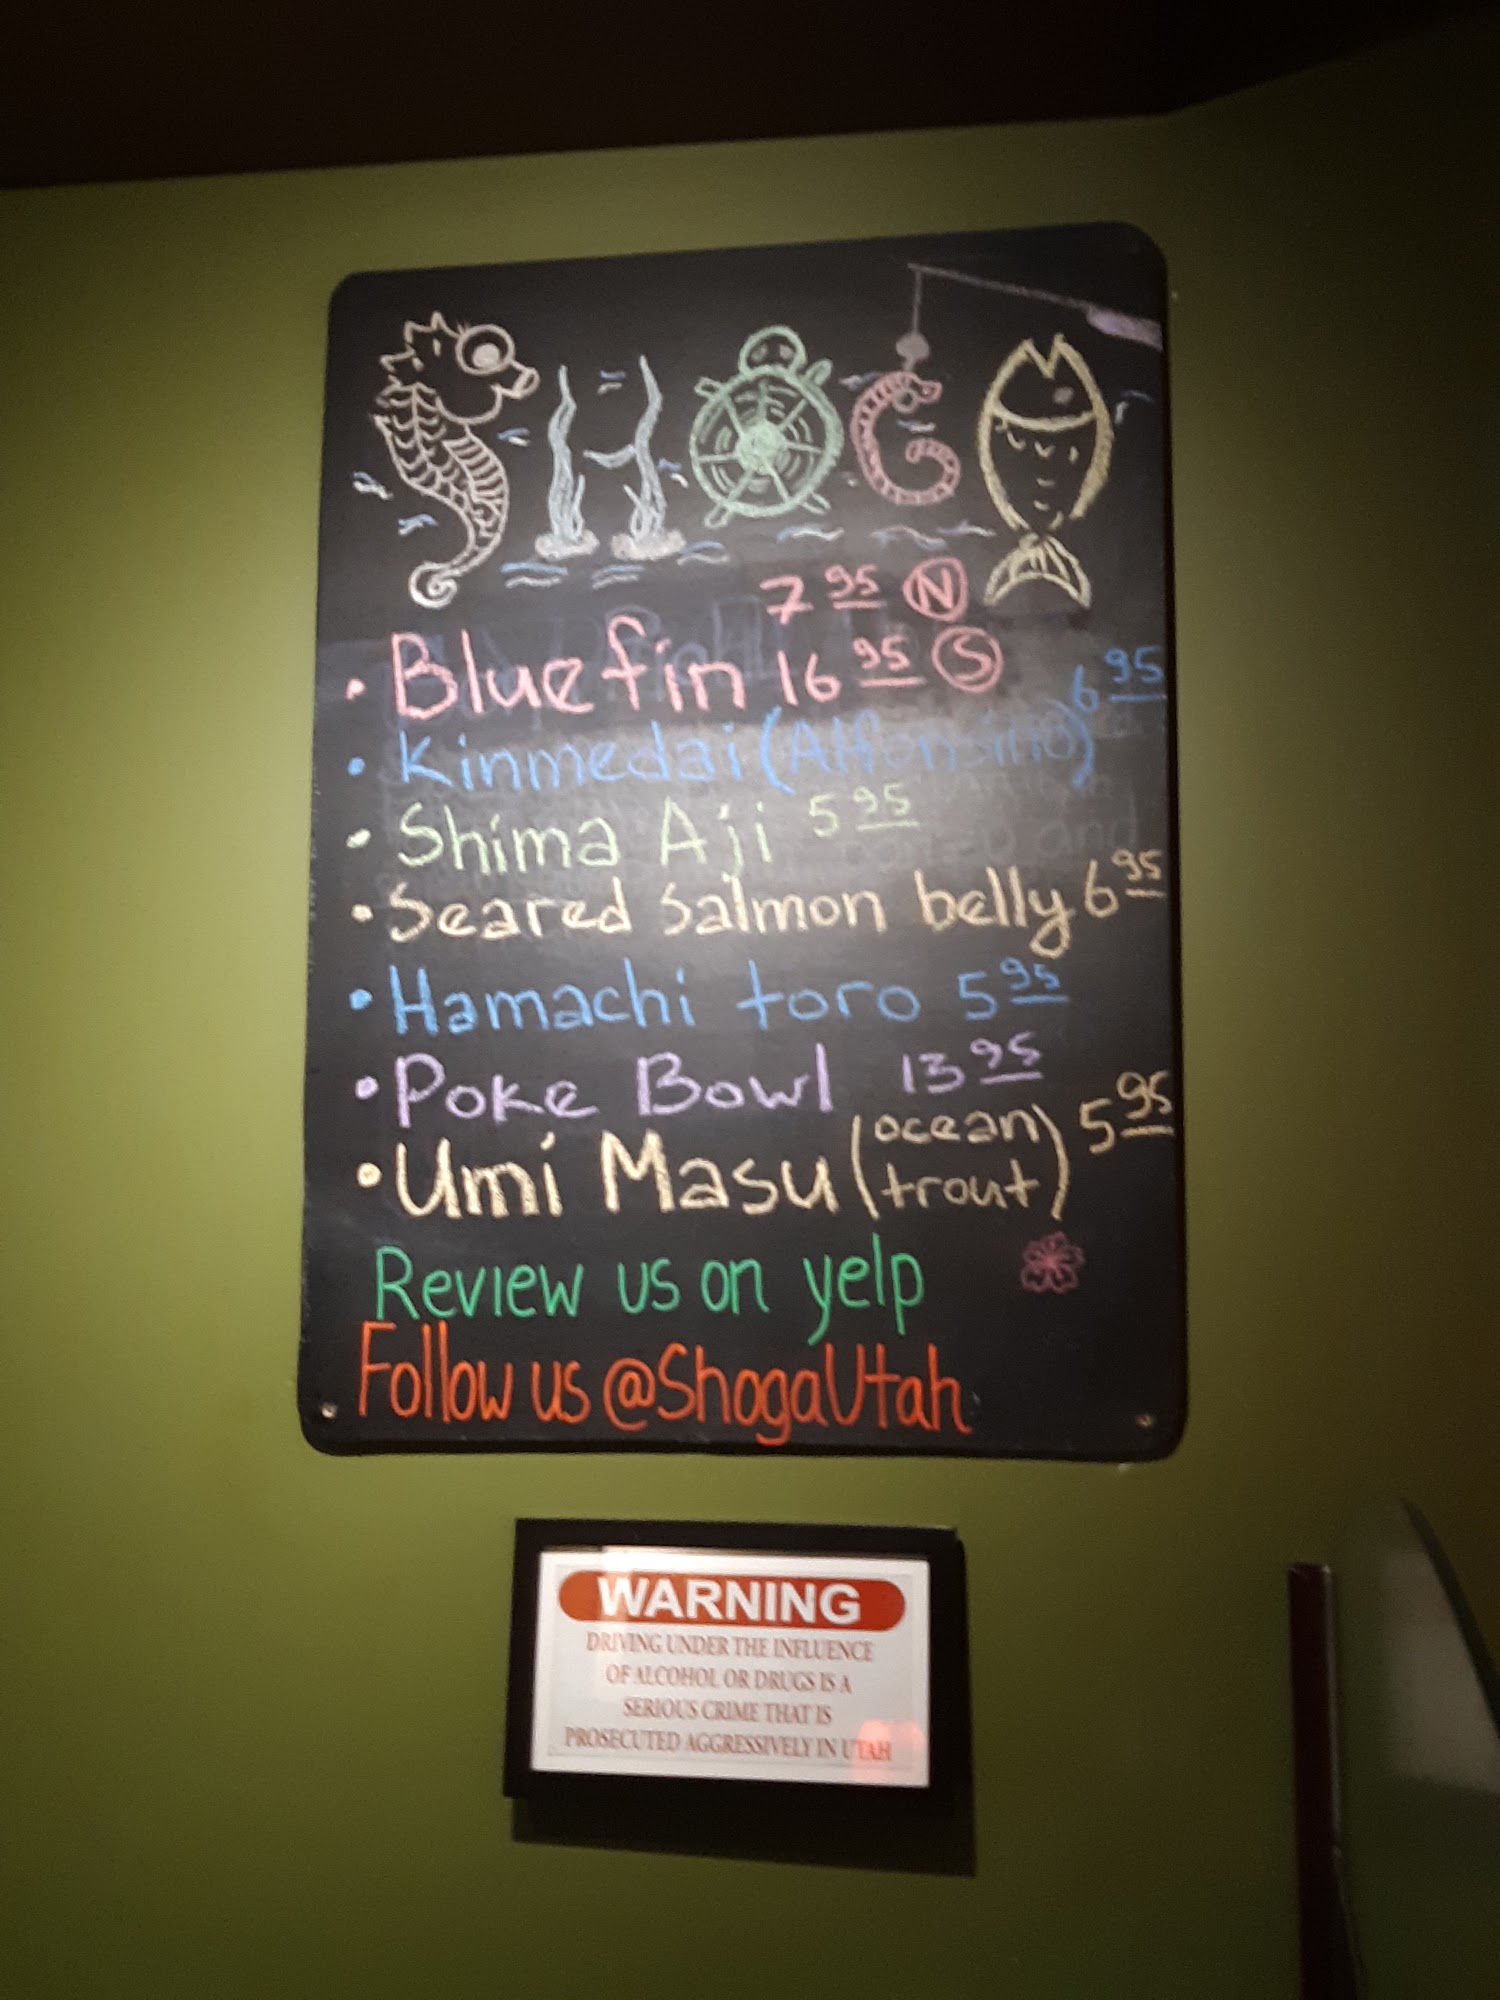 SHOGA
7.95 N
• Bluefin 16.95 S
• Kinmedai (Alfonsino) 6.95
• Shima Aji 5.95
• Seared Salmon belly 6.95
• Hamachi toro 5.95
• Poke Bowl 13.95
• Umi Masu (ocean trout) 5.95
Review us on yelp
Follow us @ShogaUtah
WARNING
DRIVING UNDER THE INFLUENCE
OF ALCOHOL OR DRUGS IS A
SERIOUS CRIME THAT IS
PROSECUTED AGGRESSIVELY IN UTAH